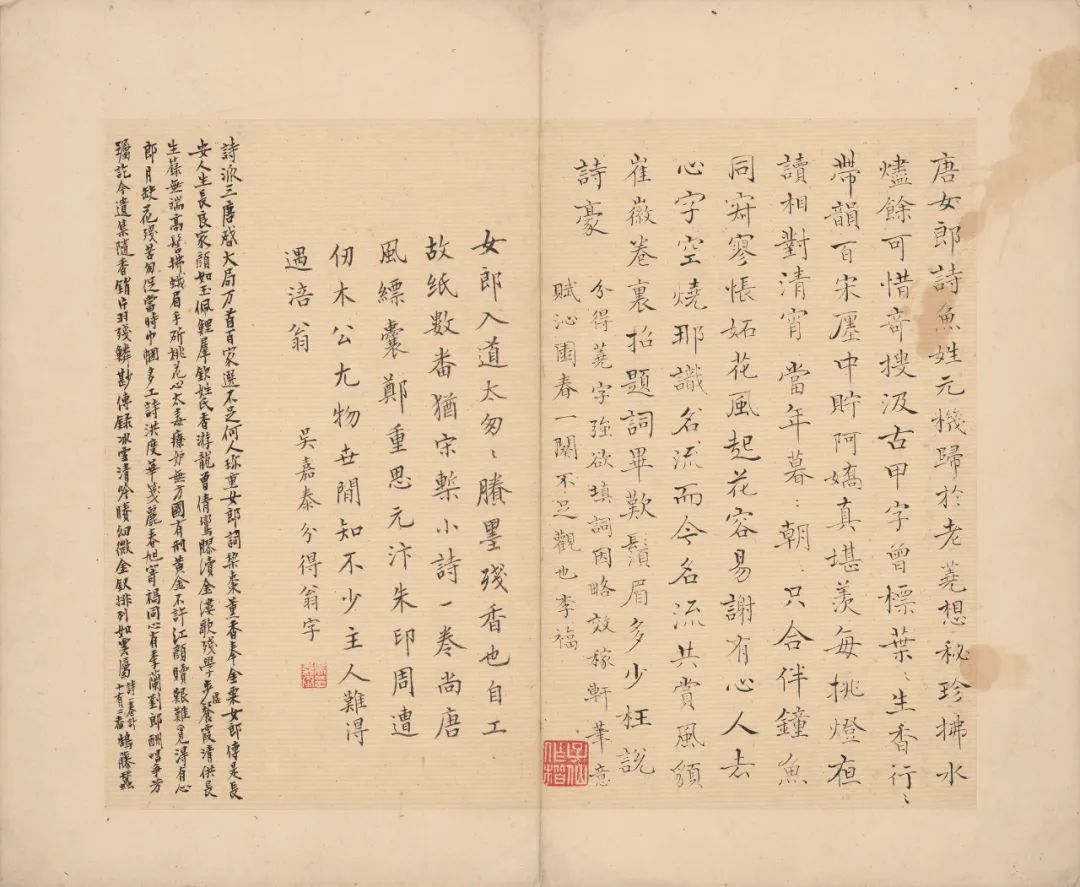 唐女郎詩魚姓元機歸於老蕘想秘珍拂水
燼餘可惜奇搜汲古甲字曾標葉〻生香行〻
帶韻百宋廛中貯阿嬌真堪羨每挑燈夜
讀相對清宵 當年暮〻朝〻只合伴鐘魚
同寂寥悵妬花風起花容易謝有心人去
心字空燒那識名流而今名流共賞風貌
崔徽卷裏招題詞畢歎鬚眉多少枉說
詩豪
分得蕘字強欲填詞因略效稼軒筆意
賦沁園春一闋不足觀也李福
女郎入道太匆〻賸墨殘香也自工
故紙數番猶宋槧小詩一卷尚唐
風縹囊鄭重思元汴朱印周遭
仞木公尤物世間知不少主人難得
遇涪翁
吳嘉泰分得翁字
詩派三唐啓大局万首百家選不足何人珍重女郎詞槧棗董香奉金粟女郎傳是長
安人生長良家顏如玉佩鯉犀釵姓氏香游龍曾倩鸞膠續金縷歌殘學步虛餐霞清供長
生籙無端高髻拂蛾眉手斫桃花心太毒療妒無方國有刑黃金不許江顏贖艱難覓得有心
郎月缺花殘苦匆促當時巾幗多工詩洪度華箋麗春旭寄禍同心有李蘭劉郎酬唱爭芳
躅訖今遺集隨香銷片羽殘鱗尠傳錄冰雪清吟賸幼微金釵排列如雲屬
詩一卷計
十有二番